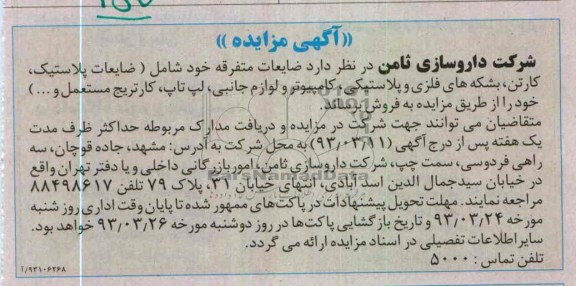 «آگهی مزایده»
شرکت داروسازی ثامن در نظر دارد ضایعات متفرقه خود شامل ( ضایعات پلاستیک،
کارتن، بشکه های فلزی و پلاستیکی، کامپیوتر و لوازم جانبی، لپ تاپ، کارتریج مستعمل و ...)
خود را از طریق مزایده به فروش برساند.
متقاضیان می توانند جهت شرکت در مزایده و دریافت مدارک مربوطه حداکثر ظرف مدت
یک هفته پس از درج آگهی (۹۳/۰۳/۱۱) به محل شرکت به آدرس: مشهد، جاده قوچان، سه
راهی فردوسی، سمت چپ، شرکت داروسازی ثامن، امور بازرگانی داخلی و یا دفتر تهران واقع
در خیابان سیدجمال الدین اسد آبادی، انتهای خیابان ۳۱، پلاک ۷۹ تلفن ۸۸۴۹۸۶۱۷
مراجعه نمایند. مهلت تحویل پیشنهادات در پاکت‌های ممهور شده تا پایان وقت اداری روز شنبه
مورخه ۹۳/۰۳/۲۴ و تاریخ بازگشایی پاکت‌ها در روز دوشنبه مورخه ۹۳/۰۳/۲۶ خواهد بود.
سایر اطلاعات تفصیلی در اسناد مزایده ارائه می گردد.
تلفن تماس : ۵۰۰۰
۱/۹۳۱۰۶۲۶۸